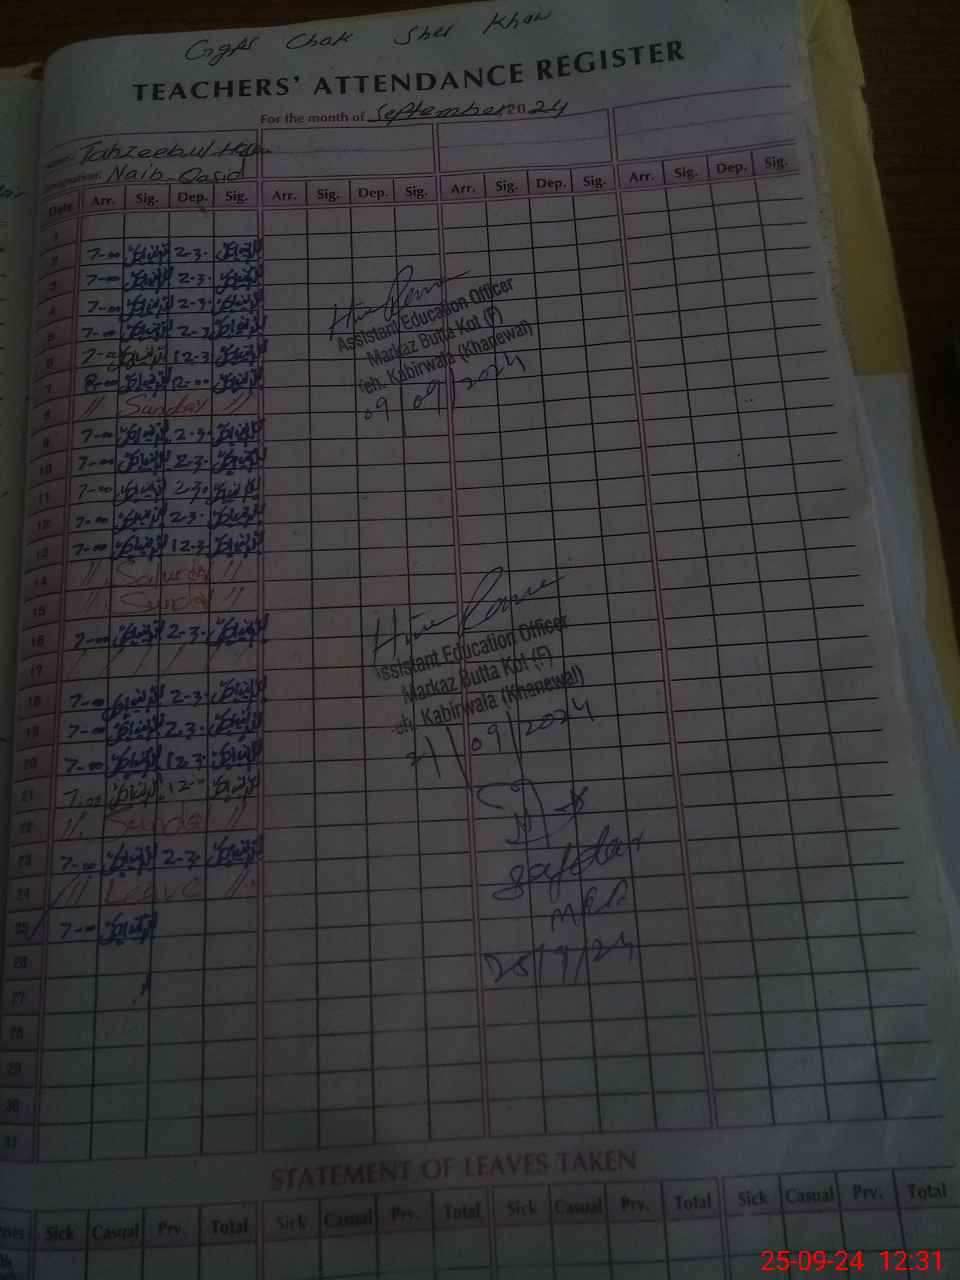 Chak Sher Khan
TEACHERS' ATTENDANCE REGISTER
For the month of September 2024
Name: Tahzeebul
Designation: Naib-Qasid
Date Arr. Sig. Dep. Sig. Arr. Sig. Dep. Sig. Arr. Sig. Dep. Sig. Arr. Sig. Dep. Sig.
1
2 7-00 2-3-
3 7-00 2-3-
4 7-00 2-3-
5 7-00 2-3
6 7-00 12-3-
7 8-00 12-00
8 // Sunday //
9 7-00 2-3-
10 7-00 2-3-
11 7-00 2-3-
12 7-00 2-3-
13 7-00 12-3-
14 // Saturday //
15 // Sunday //
16 7-00 2-3-
17 / / / / /
18 7-00 2-3-
19 7-00 2-3-
20 7-00 12-3
21 7-00 12-
22 // Sunday //
23 7-00 2-3-
24 /// Leave //
25 7-00
26
27
28
29
30
31
Assistant Education Officer
Markaz Butta Kot (F)
Teh. Kabirwala (Khanewal)
09/09/2024
Assistant Education Officer
Markaz Butta Kot (F)
Teh. Kabirwala (Khanewal)
21/09/2024
Safdar
MEA
25/9/24
STATEMENT OF LEAVES TAKEN
Sick Casual Prv. Total Sick Casual Prv. Total Sick Casual Prv. Total Sick Casual Prv. Total
25-09-24 12:31